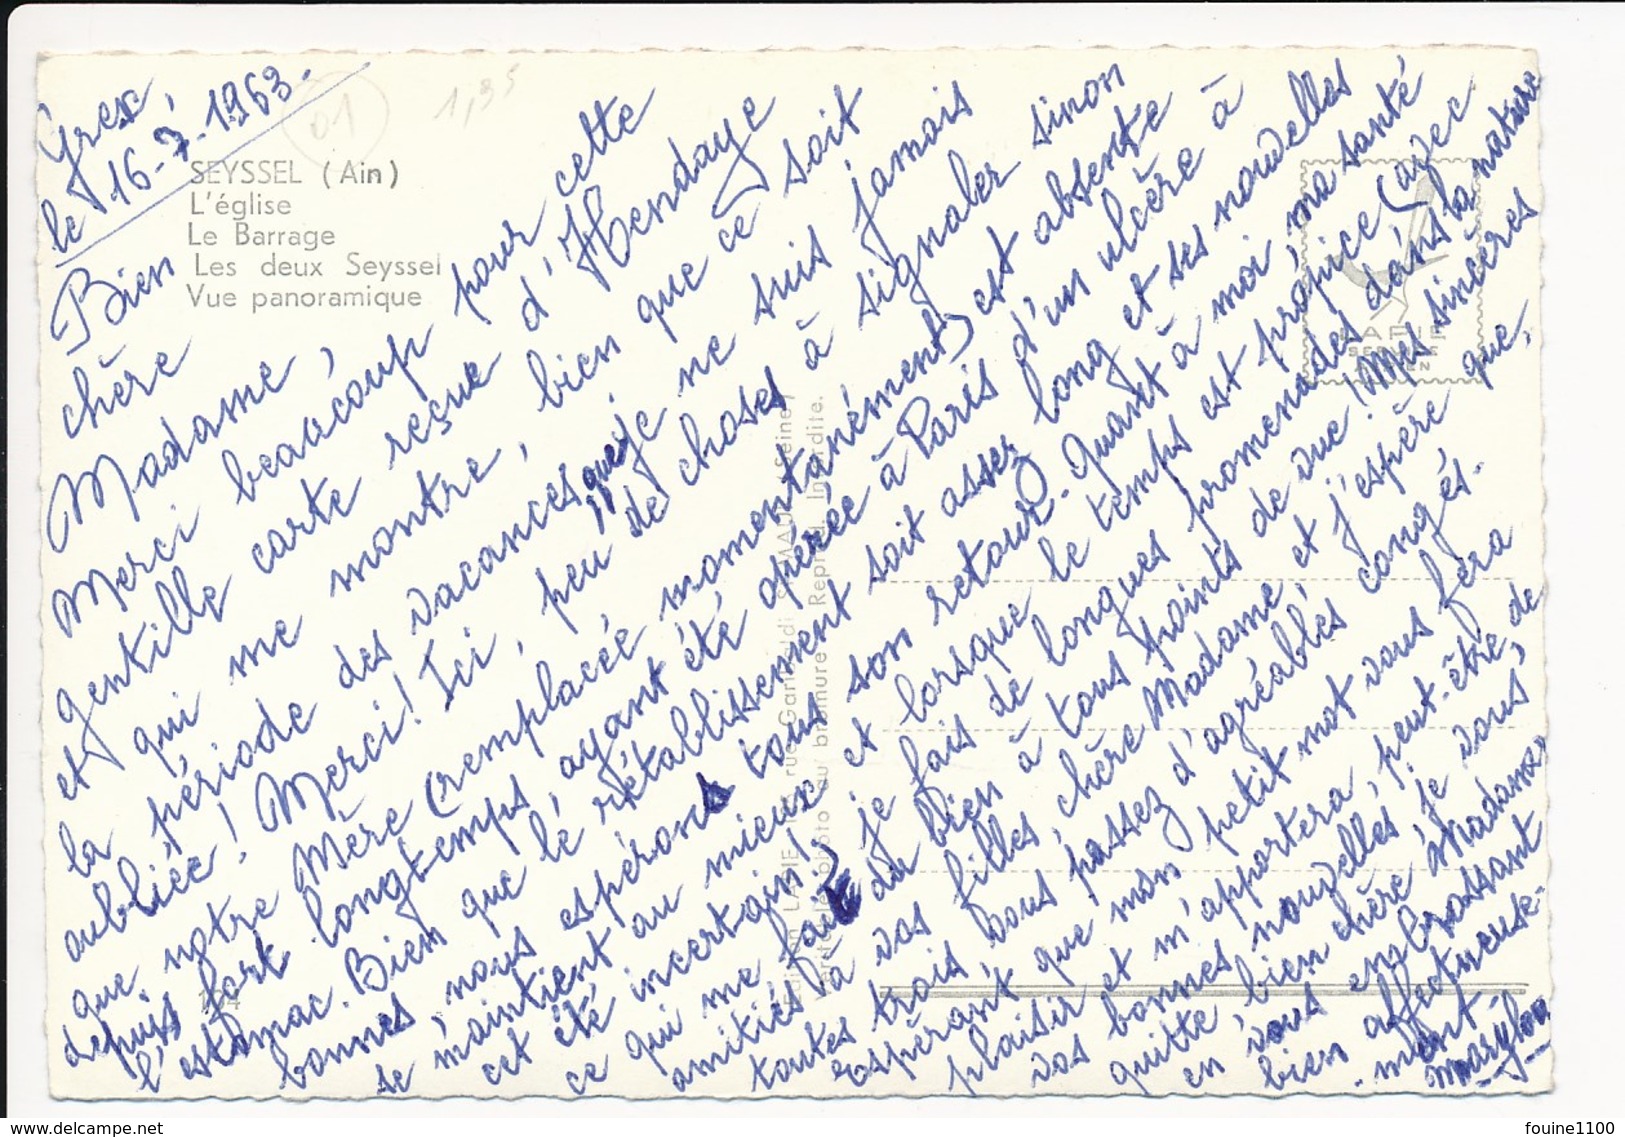 Gresx,
le 16-7-1963.
Bien
chère
Madame,
Merci beaucoup pour cette
gentille carte reçue d'Hendaye
et qui me montre, bien que ce soit
la période des vacances que je ne suis jamais
oubliée! Merci! Ici, peu de choses à signaler sinon
que notre Mère (remplacée momentanément) est absente
depuis fort longtemps, ayant été opérée à Paris d'un ulcère à
l'estomac. Bien que le rétablissement soit assez long et ses nouvelles
bonnes, nous espérons tous son retour. Quant à moi, ma santé
se maintient au mieux et lorsque le temps est propice (avec
cet été incertain!) je fais de longues promenades dans la nature
ce qui me fait du bien à tous points de vue! Mes sincères
amitiés à vos filles, chère Madame et j'espère que,
toutes trois, vous passez d'agréables congés.
Espérant que mon petit mot vous fera
plaisir et m'apportera, peut-être, de
vos bonnes nouvelles, je vous
quitte, bien chère Madame,
en vous embrassant
bien affectueuse-
-ment.
SEYSSEL (Ain)
L'église
Le Barrage
Les deux Seyssel
Vue panoramique
01
1,35
fouine1100
www.delcampe.net